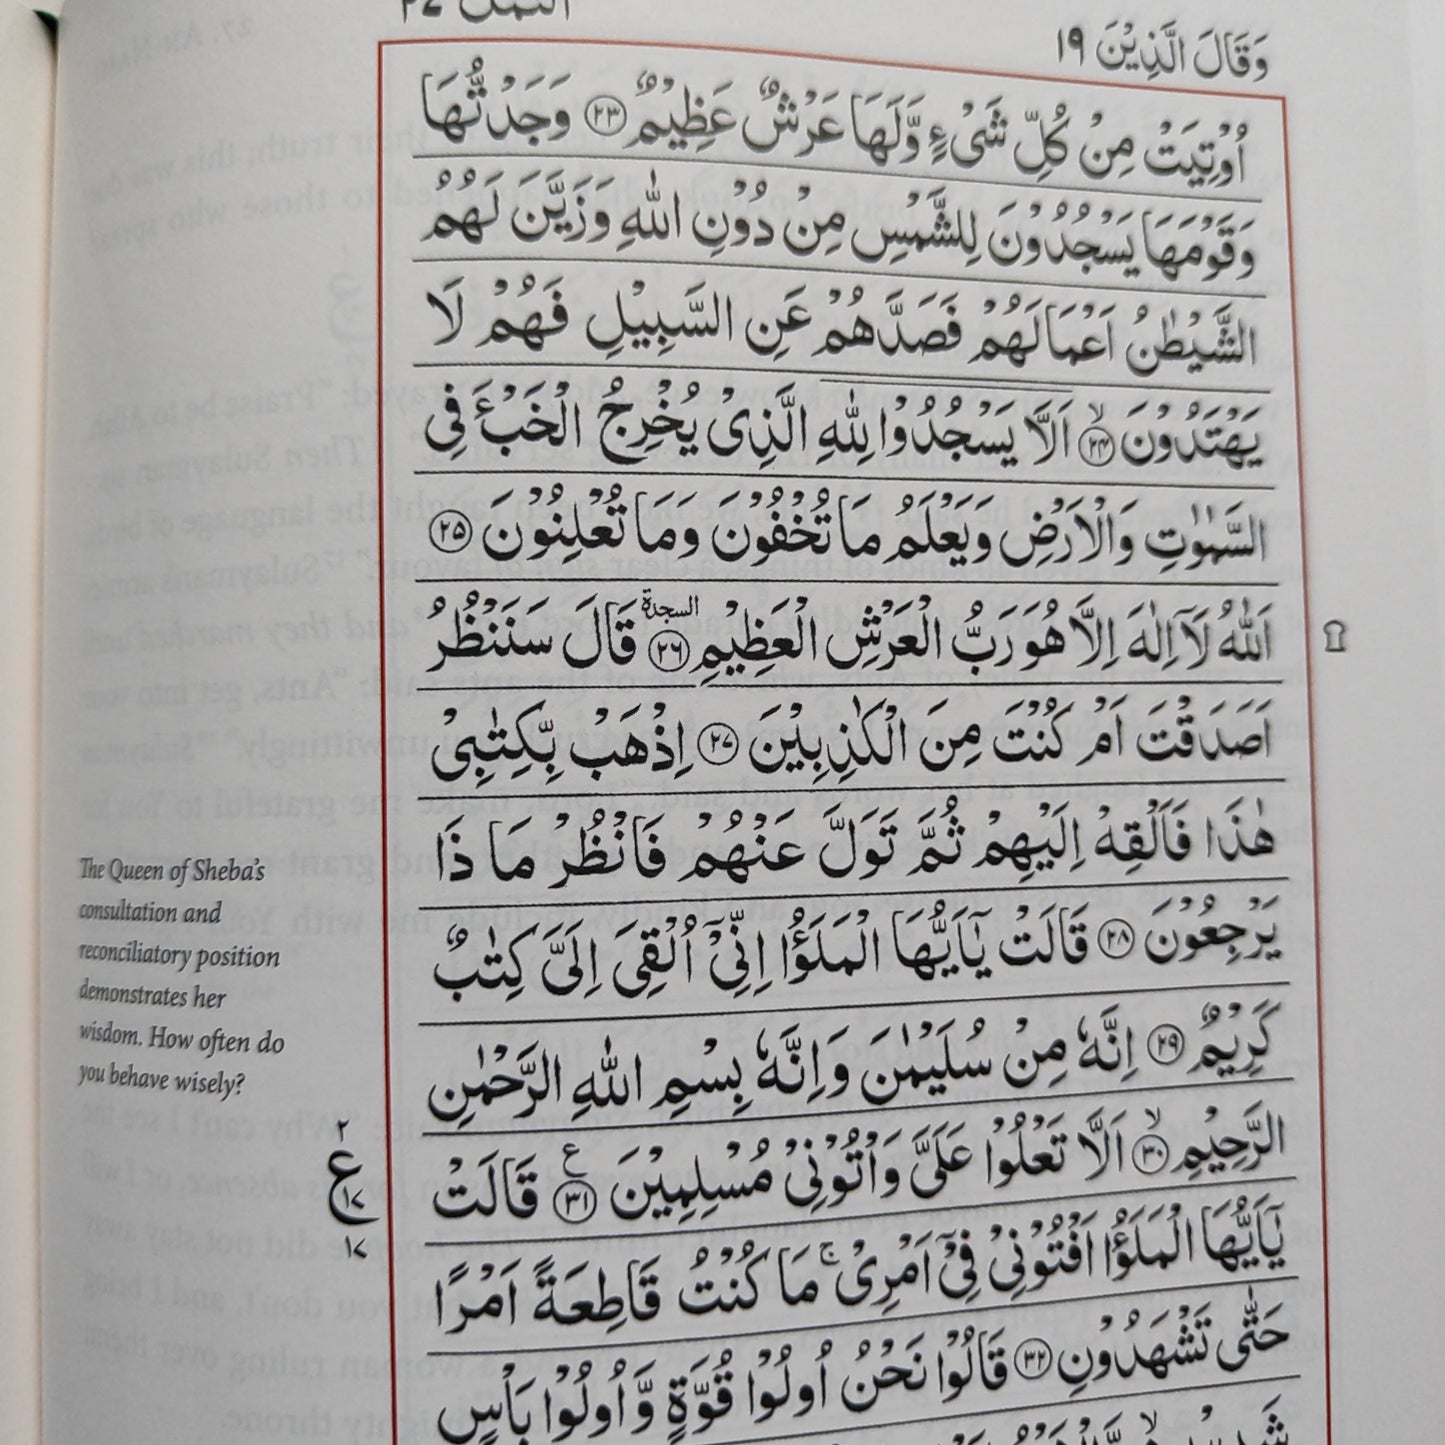 وَقَالَ الَّذِيْنَ ١٩
النمل ٢٧
اُوْتِيَتْ مِنْ كُلِّ شَىْءٍ وَّلَهَا عَرْشٌ عَظِيْمٌ ٢٣ وَجَدْتُّهَا
وَقَوْمَهَا يَسْجُدُوْنَ لِلشَّمْسِ مِنْ دُوْنِ اللّٰهِ وَزَيَّنَ لَهُمُ
الشَّيْطٰنُ اَعْمَالَهُمْ فَصَدَّهُمْ عَنِ السَّبِيْلِ فَهُمْ لَا
يَهْتَدُوْنَ ۙ٢٤ اَلَّا يَسْجُدُوْا لِلّٰهِ الَّذِىْ يُخْرِجُ الْخَبْءَ فِى
السَّمٰوٰتِ وَالْاَرْضِ وَيَعْلَمُ مَا تُخْفُوْنَ وَمَا تُعْلِنُوْنَ ٢٥
اَللّٰهُ لَاۤ اِلٰهَ اِلَّا هُوَ رَبُّ الْعَرْشِ الْعَظِيْمِ السجدة ٢٦ قَالَ سَنَنْظُرُ
اَصَدَقْتَ اَمْ كُنْتَ مِنَ الْكٰذِبِيْنَ ٢٧ اِذْهَبْ بِّكِتٰبِىْ
هٰذَا فَاَلْقِهْ اِلَيْهِمْ ثُمَّ تَوَلَّ عَنْهُمْ فَانْظُرْ مَا ذَا
يَرْجِعُوْنَ ٢٨ قَالَتْ يٰۤاَيُّهَا الْمَلَؤُا اِنِّىْۤ اُلْقِىَ اِلَىَّ كِتٰبٌ
كَرِيْمٌ ٢٩ اِنَّهٗ مِنْ سُلَيْمٰنَ وَاِنَّهٗ بِسْمِ اللّٰهِ الرَّحْمٰنِ
الرَّحِيْمِ ۙ٣٠ اَلَّا تَعْلُوْا عَلَىَّ وَاْتُوْنِىْ مُسْلِمِيْنَ ع ٣١ قَالَتْ
يٰۤاَيُّهَا الْمَلَؤُا اَفْتُوْنِىْ فِىْۤ اَمْرِىْ ۚ مَا كُنْتُ قَاطِعَةً اَمْرًا
حَتّٰى تَشْهَدُوْنِ ٣٢ قَالُوْا نَحْنُ اُولُوْا قُوَّةٍ وَّاُولُوْا بَاْسٍ
The Queen of Sheba's
consultation and
reconciliatory position
demonstrates her
wisdom. How often do
you behave wisely?
٢
ع
١٧
١٧